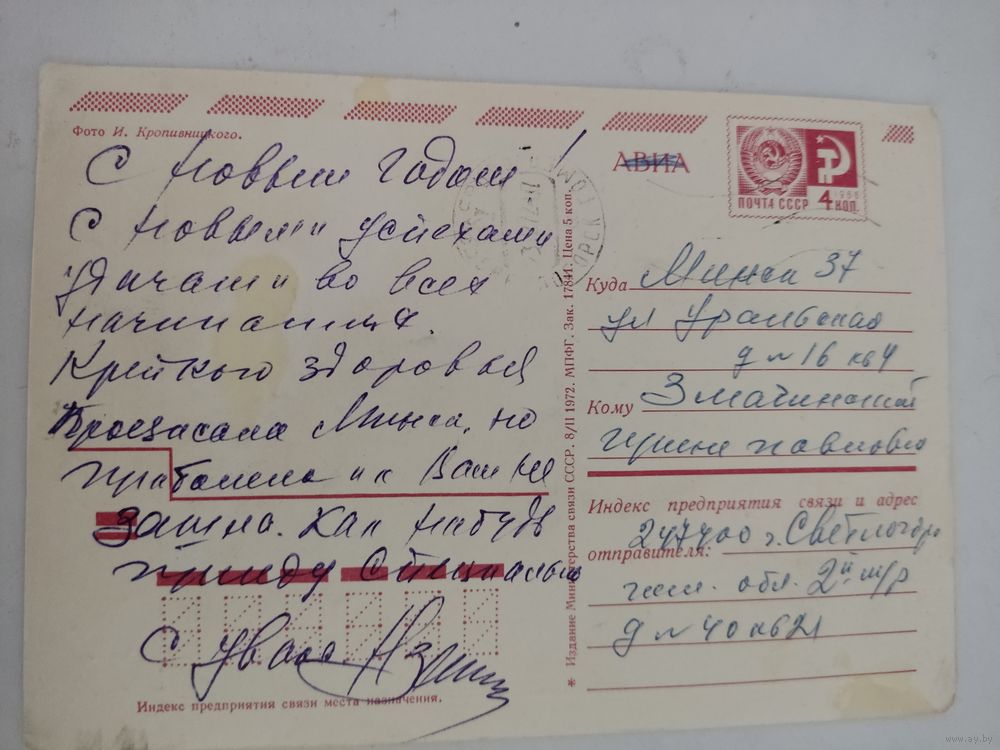 Фото И. Кропивницкого.
С новым годом!
С новыми успехами
удачами во всех
начинаниях.
Крепкого здоровья
Минск, но
приболела и к Вам не
зашла. Как нибудь
приеду специально
С уваж.
Индекс предприятия связи места назначения.
* Издание Министерства связи СССР. 8/II 1972. МПФГ. Зак. 17841. Цена 5 коп.
АВИА
ПОЧТА СССР 4 КОП.
1966
Куда Минск 37
ул Уральская
д № 16 кв 4
Кому Змачинской
Ирине Павловне
Индекс предприятия связи и адрес
отправителя: 247400 г. Светлогорск
гом. обл. 2й м/р
д № 40 кв 21
www.ay.by